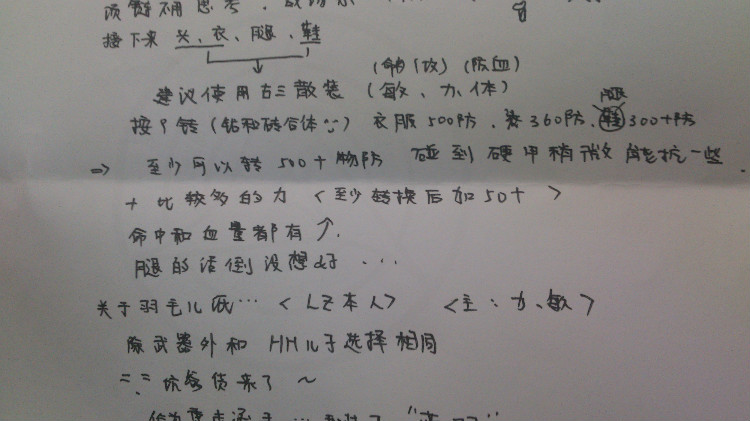 项链不用思考，
接下来 头、衣、腿、鞋
(命) (攻) (防血)
建议使用古三散装 (敏、力、体)
腿
按P转 (铅和砖合体∵) 衣服500防、头360防、鞋300+防
=> 至少可以转500+物防 碰到硬甲稍微能抗一些.
+ 比较多的力 <至少转换后加50+>
命中和血量都有↑.
腿的话倒没想好 ...
关于羽毛儿纸… <LZ本人> <主：力、敏>
除武器外和HH儿子选择相同
坑爹货来了~